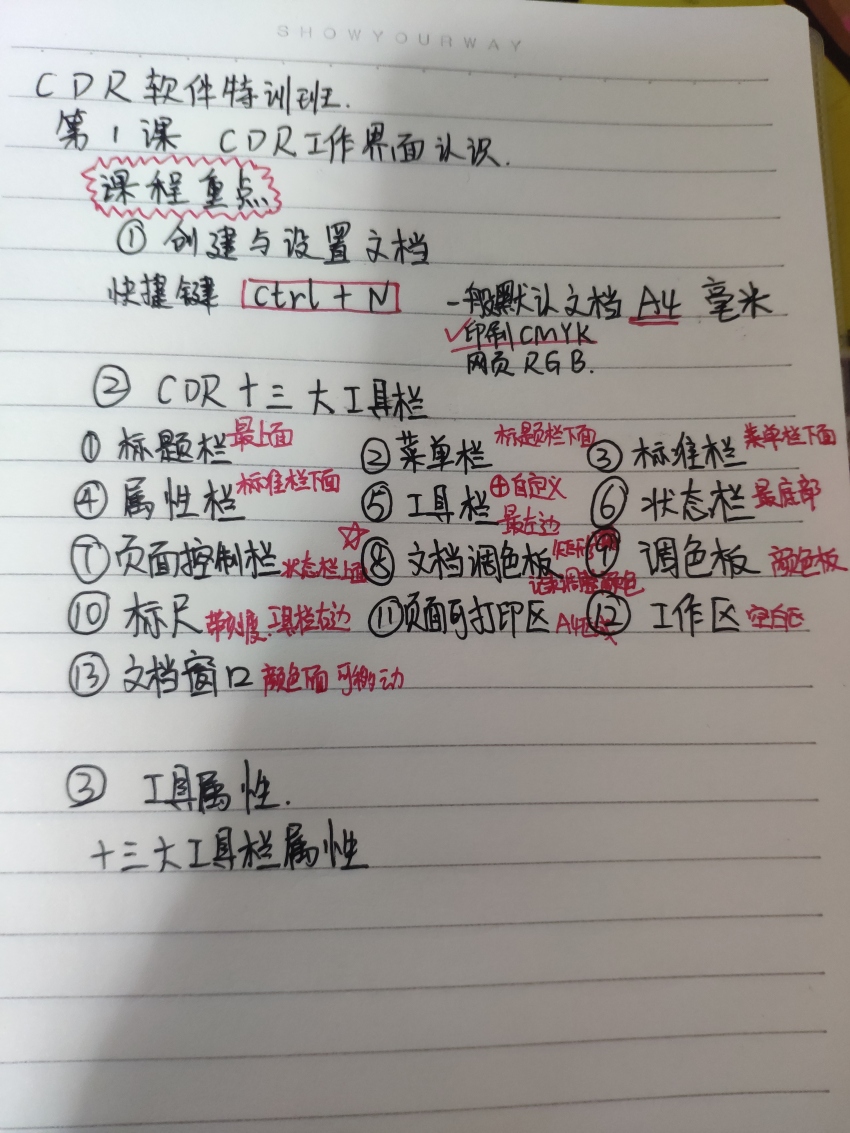 SHOWYOURWAY
CDR软件特训班.
第1课 CDR工作界面认识.
课程重点
①创建与设置文档
快捷键 Ctrl+N 一般默认文档A4 毫米
✓印刷CMYK
网页RGB.
②CDR十三大工具栏
①标题栏 最上面 ②菜单栏 标题栏下面 ③标准栏 菜单栏下面
④属性栏 标准栏下面 ⑤工具栏 ⊕自定义 最左边 ⑥状态栏 最底部
⑦页面控制栏 状态栏上面 ☆ ⑧文档调色板 记录调整颜色 ⑨调色板 颜色板
⑩标尺 带刻度.工具栏右边 ⑪页面可打印区 A4 ⑫工作区 空白区
⑬文档窗口 颜色下面 可移动
③工具属性.
十三大工具栏属性